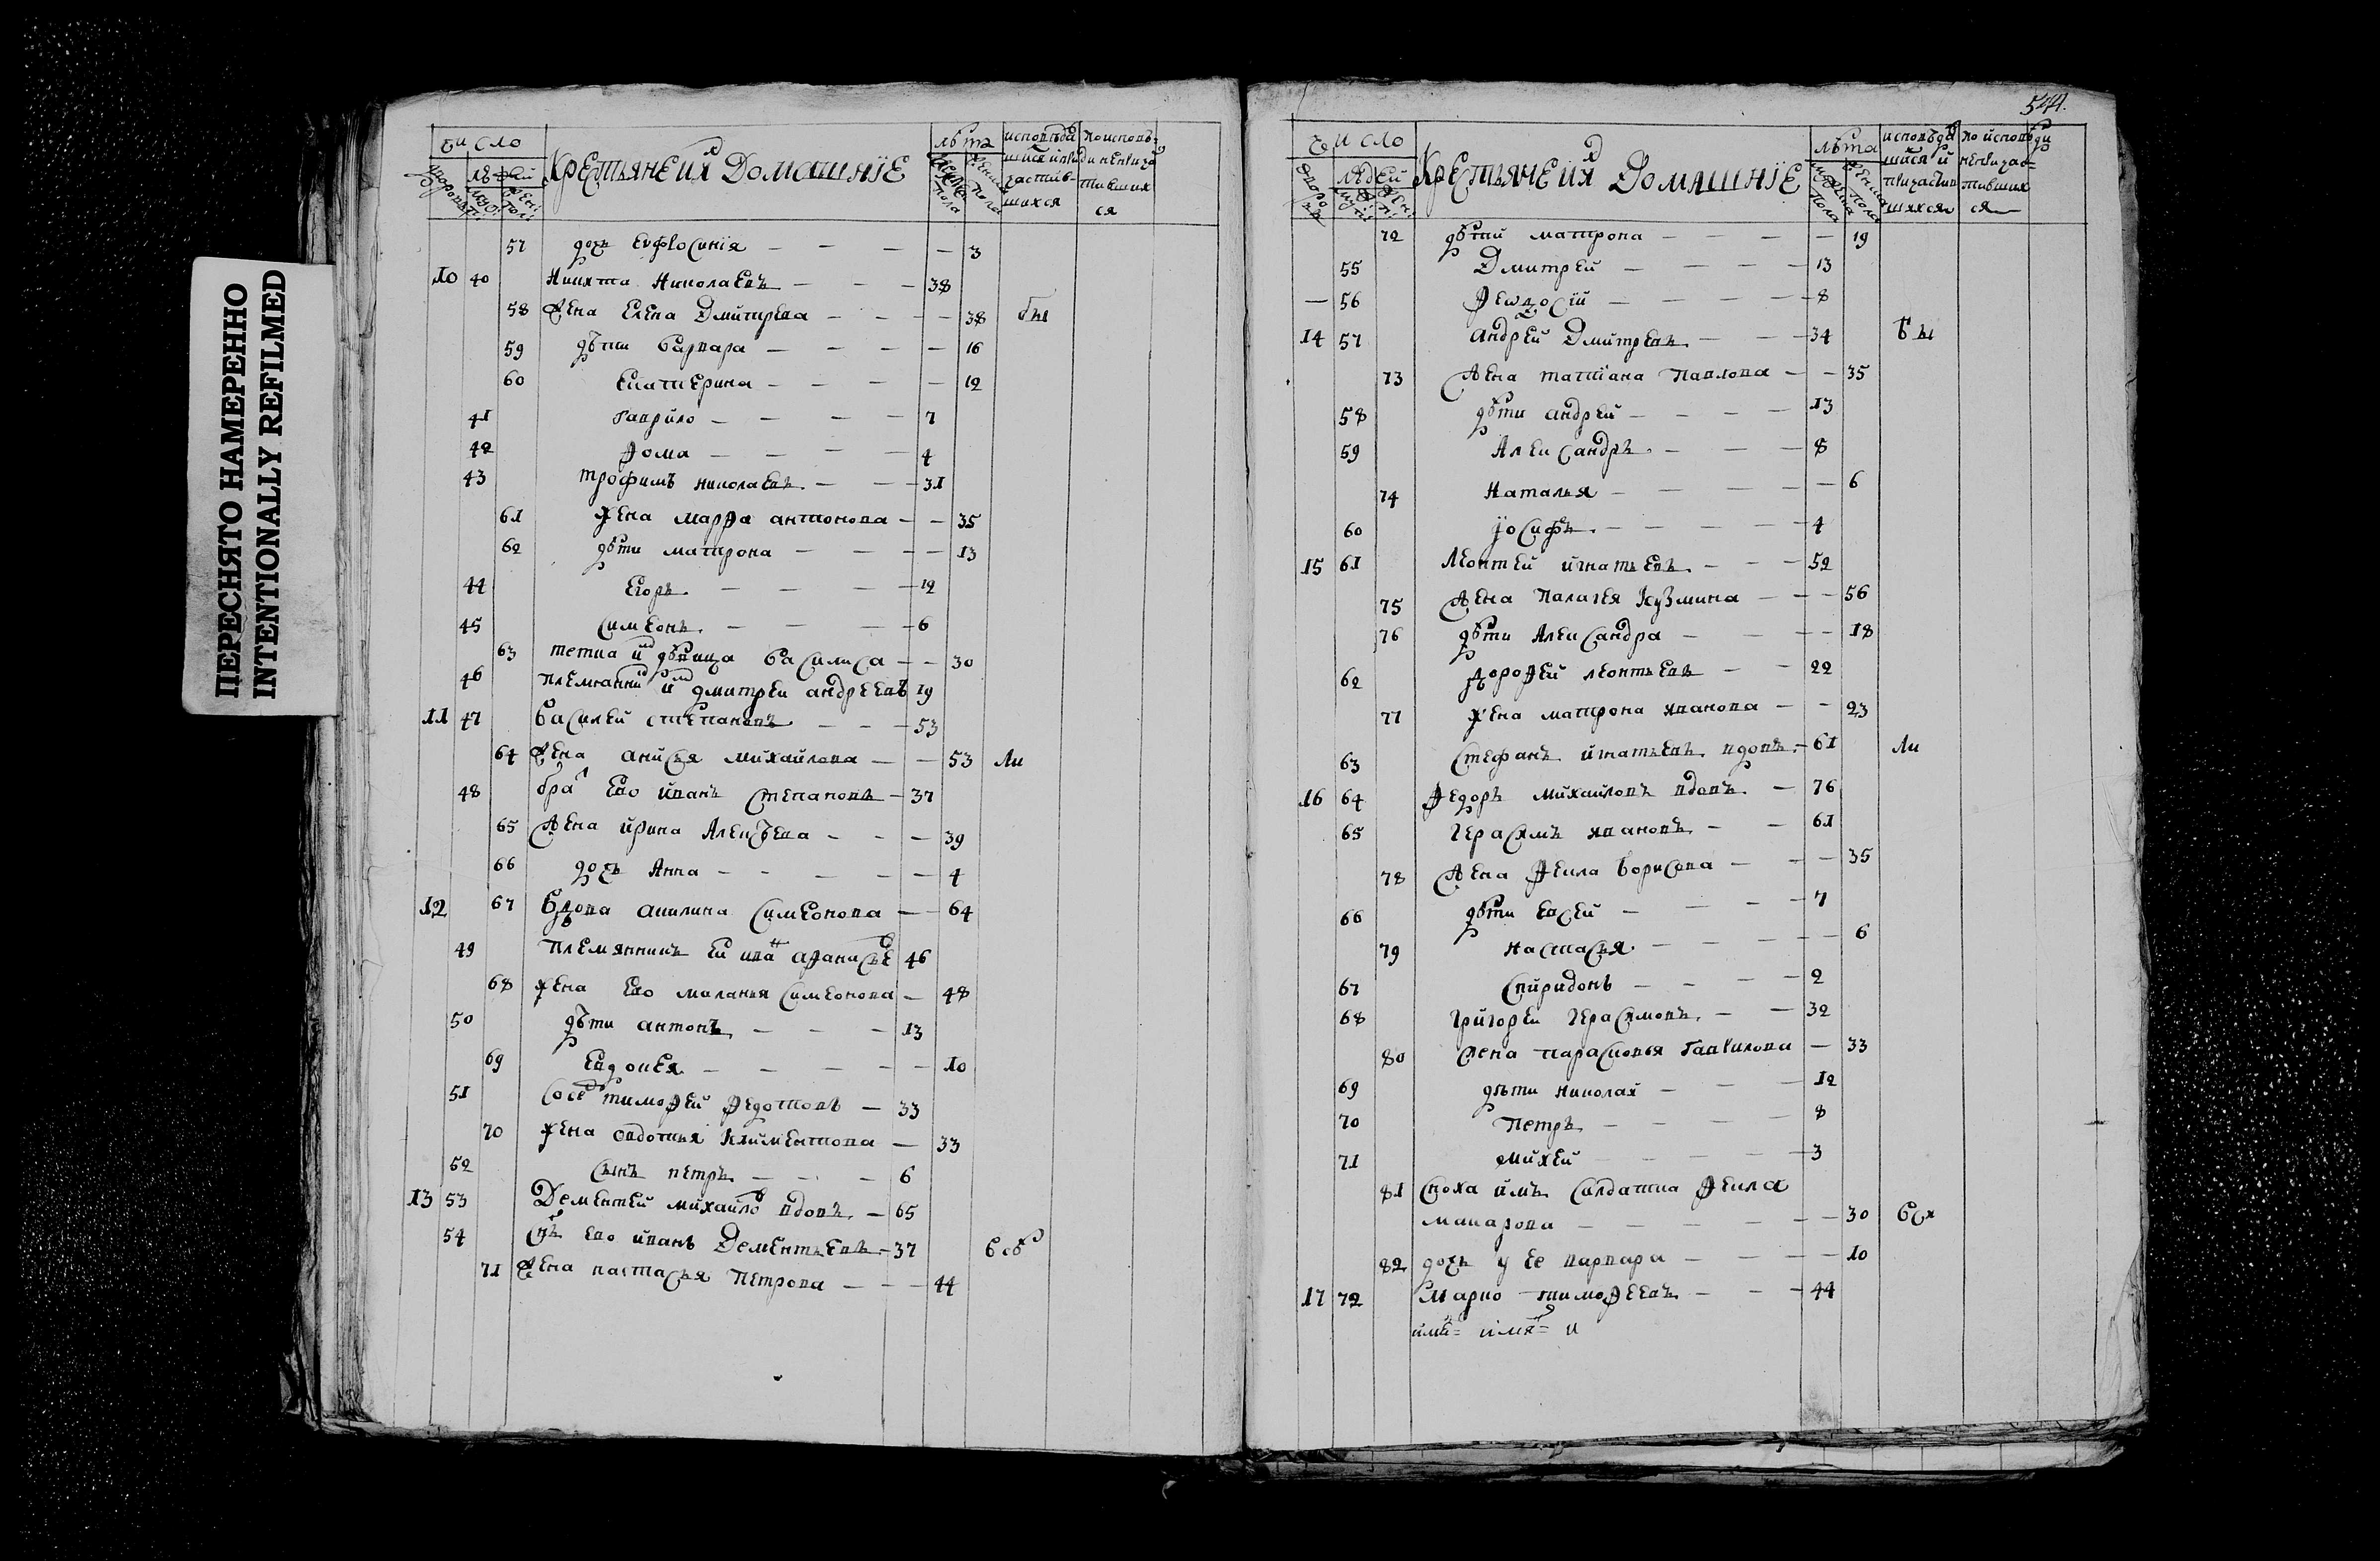 ПЕРЕСНЯТО НАМЕРЕННО
INTENTIONALLY REFILMED
число
людей
Крестьяне ихъ Домашнїе
лѣта
57 дочь Еуфросинїя — — — — 3
10 40 Никита Николаевъ — — — 38
58 Жена Елена Дмитрева — — — 38 бы
59 дѣти Варвара — — — — 16
60 Екатерина — — — — 12
41 Гаврило — — — — 7
42 Ѳома — — — — 4
43 трофимъ николаевъ — — 31
61 жена марѳа антонова — — 35
62 дѣти матрона — — — — 13
44 Егоръ — — — — 12
45 Симеонъ — — — — 6
63 тетка и дѣвица Василиса — — 30
46 племянни и дмитреи андреевъ 19
11 47 Василей степановъ — — — 53
64 Жена аниСья михайлова — — 53 Ли
48 бра Ево иванъ Степановъ — 37
65 Жена ирина АлекСѣева — — — 39
66 дочь Анна — — — — — 4
12 67 Вдова акилина Симеонова — — 64
49 племянникъ Ей ива аѳанасье 46
68 жена Ево маланья Симеонова — 48
50 дѣти антонъ — — — 13
69 Евдокея — — — — — 10
51 СоСе тимоѳей ѳедотовъ — 33
70 жена овдотья климентова — 33
52 Сынъ петръ — — — 6
13 53 Дементей михайло вдовъ — 65
54 Снъ ево иванъ Дементьевъ — 37
71 Жена настаСья Петрова — — — 44
544.
число
людей
Крестьяне ихъ Домашнїе
лѣта
72 дѣтй матрона — — — — 19
55 Дмитрей — — — — 13
— 56 ѲеѡдоСїй — — — — 8
14 57 андрей Дмитревъ — — — 34 бы
73 Жена татїана Павлова — — 35
58 дѣти андрей — — — — 13
59 АлекСандръ — — — 8
74 Наталья — — — — — 6
60 їоСифъ — — — — — 4
15 61 Леонтей игнатьевъ — — — 52
75 Жена Палагея Кузмина — — — 56
76 дѣти АлекСандра — — — — 18
62 дороѳей леонтьевъ — — 22
77 жена матрона иванова — — 23
63 Стефанъ игнатьевъ вдовъ — 61 Ли
16 64 Ѳедоръ михайловъ вдовъ — 76
65 ГераСимъ ивановъ — — 61
78 Жена Ѳекла БориСова — — — 35
66 дѣти евСей — — — — 7
79 настаСья — — — — — 6
67 Спиридонъ — — — — 2
68 григореи ГераСимовъ — — 32
80 Жена параСковья Гаврилова — 33
69 дѣти николай — — — 12
70 Петръ — — — — 8
71 михей — — — — 3
81 Сноха имъ Солдатка Ѳекла
макарова — — — — — — 30
82 дочь у ее варвара — — — — 10
17 72 Марко тимоѳеевъ — — — 44